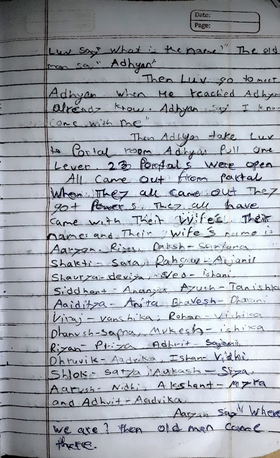 Date:
Page:
Luv say "What is the name?" The old
man say "Adhyan"
Then Luv go to meet
Adhyan when He reached Adhyan
already know. Adhyan say I know
come with me"
Then Adhyan take Luv
to Portal room Adhyan Pull one
Lever. 23 Portals were open
All Came out from Portal
When They all came out They
got Powers. They all have
came with Their Wife's. Their
name and Their Wife's name is
Aaryan- Riya, Daksh- Sanjana
Shakti- Sara, Anjani
Shaurya- deviya, Ved- ishani
Siddhant- Ananya, Ayush- Tanishka
Aaiditya- Anita, Bhavesh- Dharani
Viraj- vanshika, Rohan- Vishika
Dhanush- Sapna, Mukesh- ishika
Riyan- Priya, Adhrit- Sajani
Dhruvik- Aadvika, Ishan- Vidhi
Shlok- Satya, Aakash- Siya
Aarush- Nidhi, Akshant- Myra
and Adhvit- Aadvika.
Aaryan Say "Where
we are? then old man came
there.